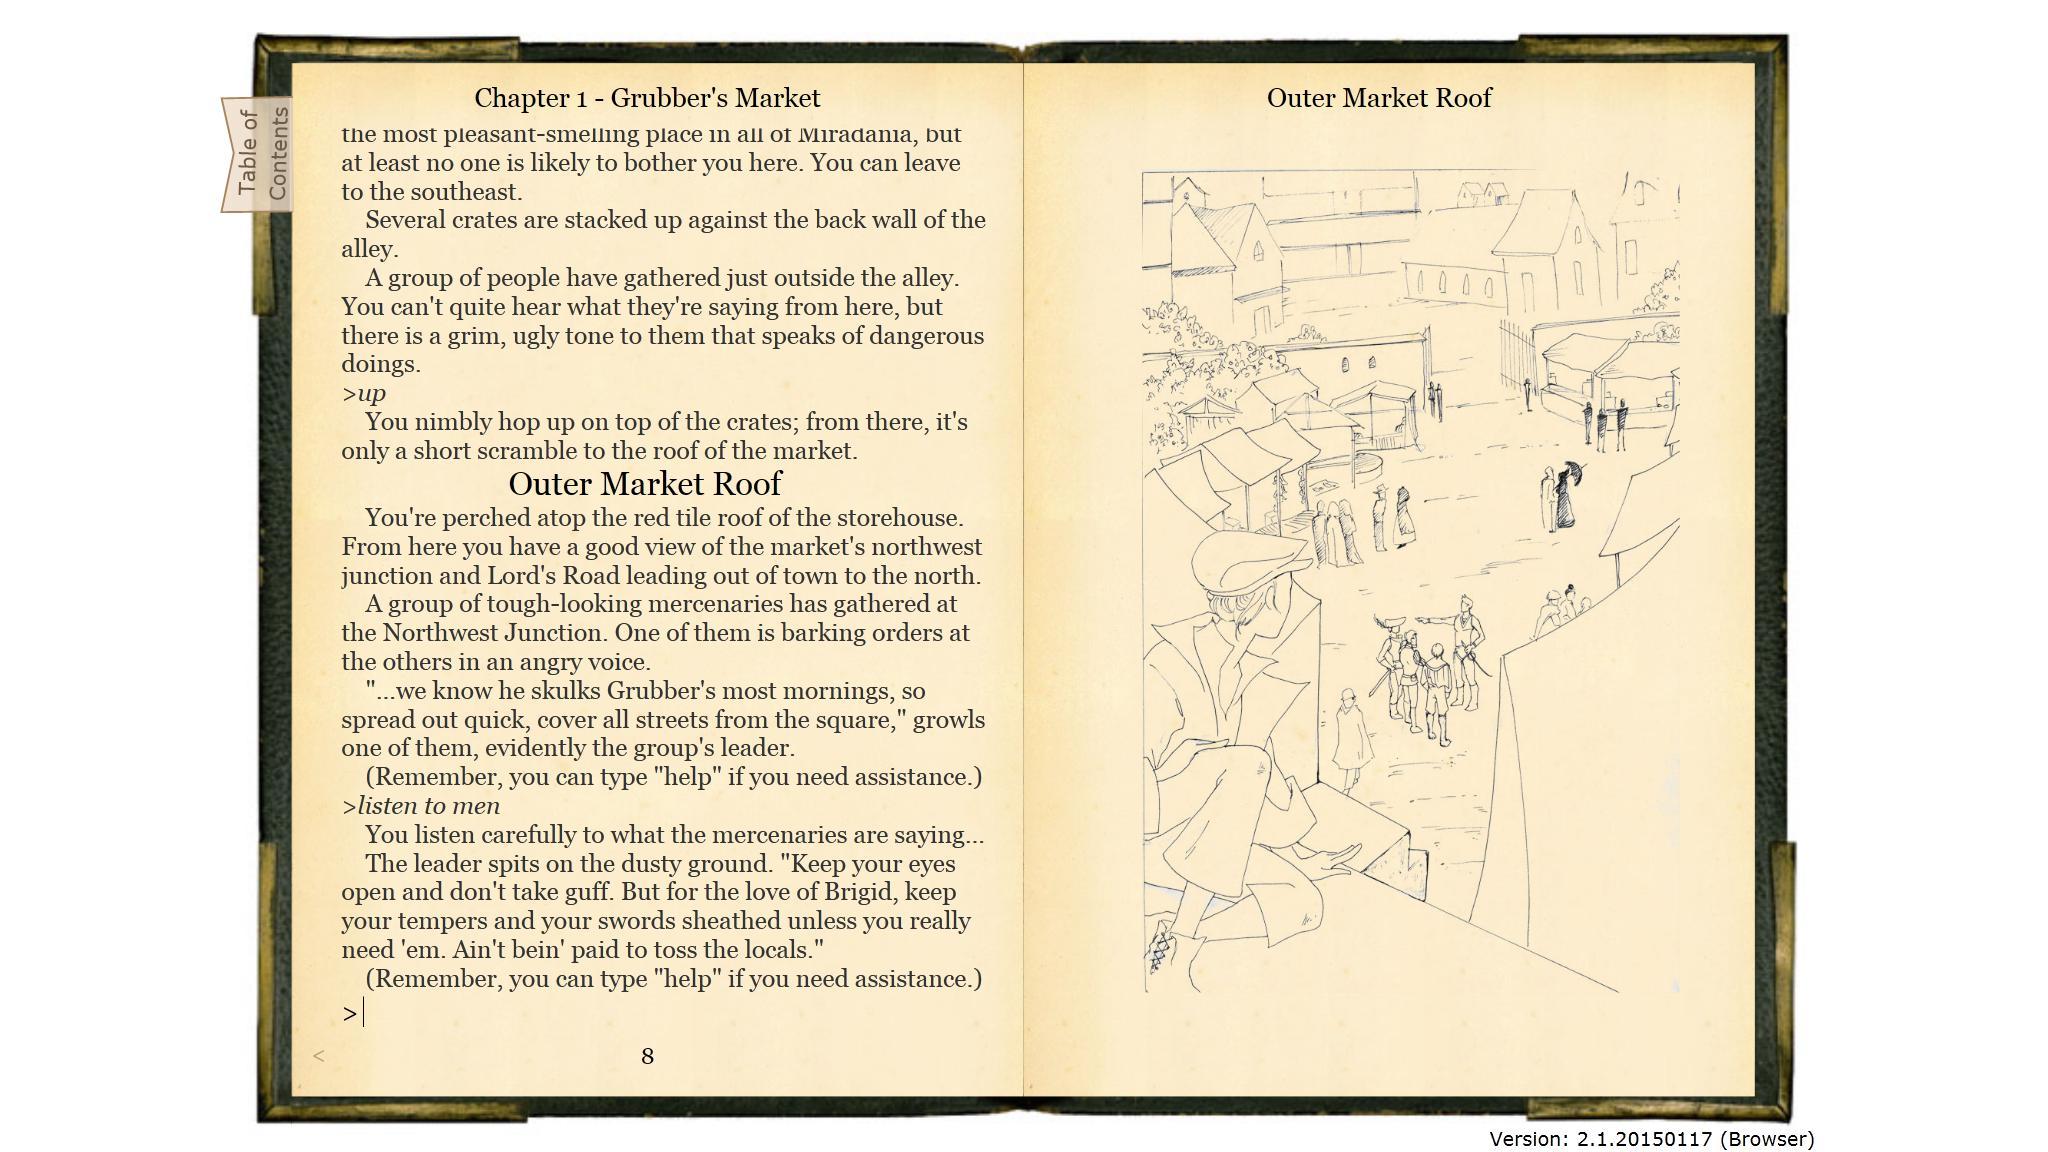 Table of
Contents
Chapter 1 - Grubber's Market
the most pleasant-smelling place in all of Miradania, but
at least no one is likely to bother you here. You can leave
to the southeast.
Several crates are stacked up against the back wall of the
alley.
A group of people have gathered just outside the alley.
You can't quite hear what they're saying from here, but
there is a grim, ugly tone to them that speaks of dangerous
doings.
>up
You nimbly hop up on top of the crates; from there, it's
only a short scramble to the roof of the market.
Outer Market Roof
You're perched atop the red tile roof of the storehouse.
From here you have a good view of the market's northwest
junction and Lord's Road leading out of town to the north.
A group of tough-looking mercenaries has gathered at
the Northwest Junction. One of them is barking orders at
the others in an angry voice.
"...we know he skulks Grubber's most mornings, so
spread out quick, cover all streets from the square," growls
one of them, evidently the group's leader.
(Remember, you can type "help" if you need assistance.)
>listen to men
You listen carefully to what the mercenaries are saying...
The leader spits on the dusty ground. "Keep your eyes
open and don't take guff. But for the love of Brigid, keep
your tempers and your swords sheathed unless you really
need 'em. Ain't bein' paid to toss the locals."
(Remember, you can type "help" if you need assistance.)
>
< 8
Outer Market Roof
Version: 2.1.20150117 (Browser)